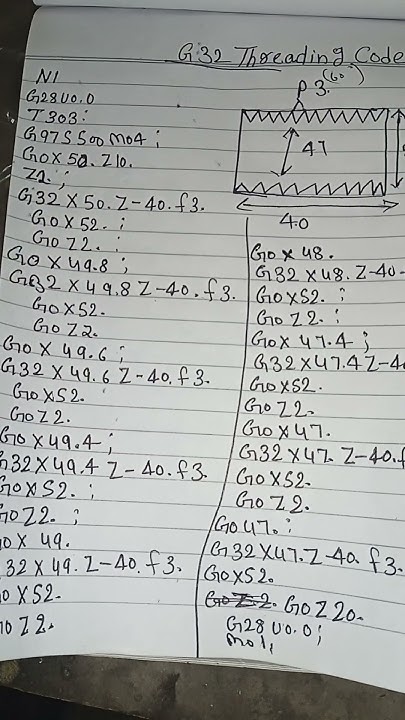 G32 Threading Code
N1
G28U0.0
T303;
G97S500M04;
G0X50.Z10.
Z2.;
G32X50.Z-40.f3.
G0X52.;
G0Z2.;
G0X49.8;
G32X49.8Z-40.f3.
G0X52.
G0Z2.
G0X49.6;
G32X49.6Z-40.f3.
G0X52.
G0Z2.
G0X49.4;
G32X49.4Z-40.f3.
G0X52.;
G0Z2.;
0X49.
32X49.Z-40.f3.
0X52.
0Z2.
P3.(60°)
47
40
G0X48.
G32X48.Z-40-
G0X52.;
G0Z2.;
G0X47.4;
G32X47.4Z-4
G0X52.
G0Z2.
G0X47.
G32X47.Z-40.f
G0X52.
G0Z2.
G047.;
G32X47.Z-40.f3.
G0X52.
G0Z2. G0Z20.
G28U0.0;
M01,